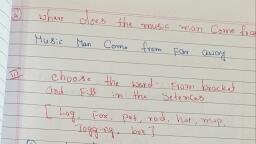 Where does the music man Come from
Music Man Come from Far away
III choose the word From bracket
and Fill in the Setences
[ Log, Fox, pot, rod, hot, mop,
Jogging, box ]